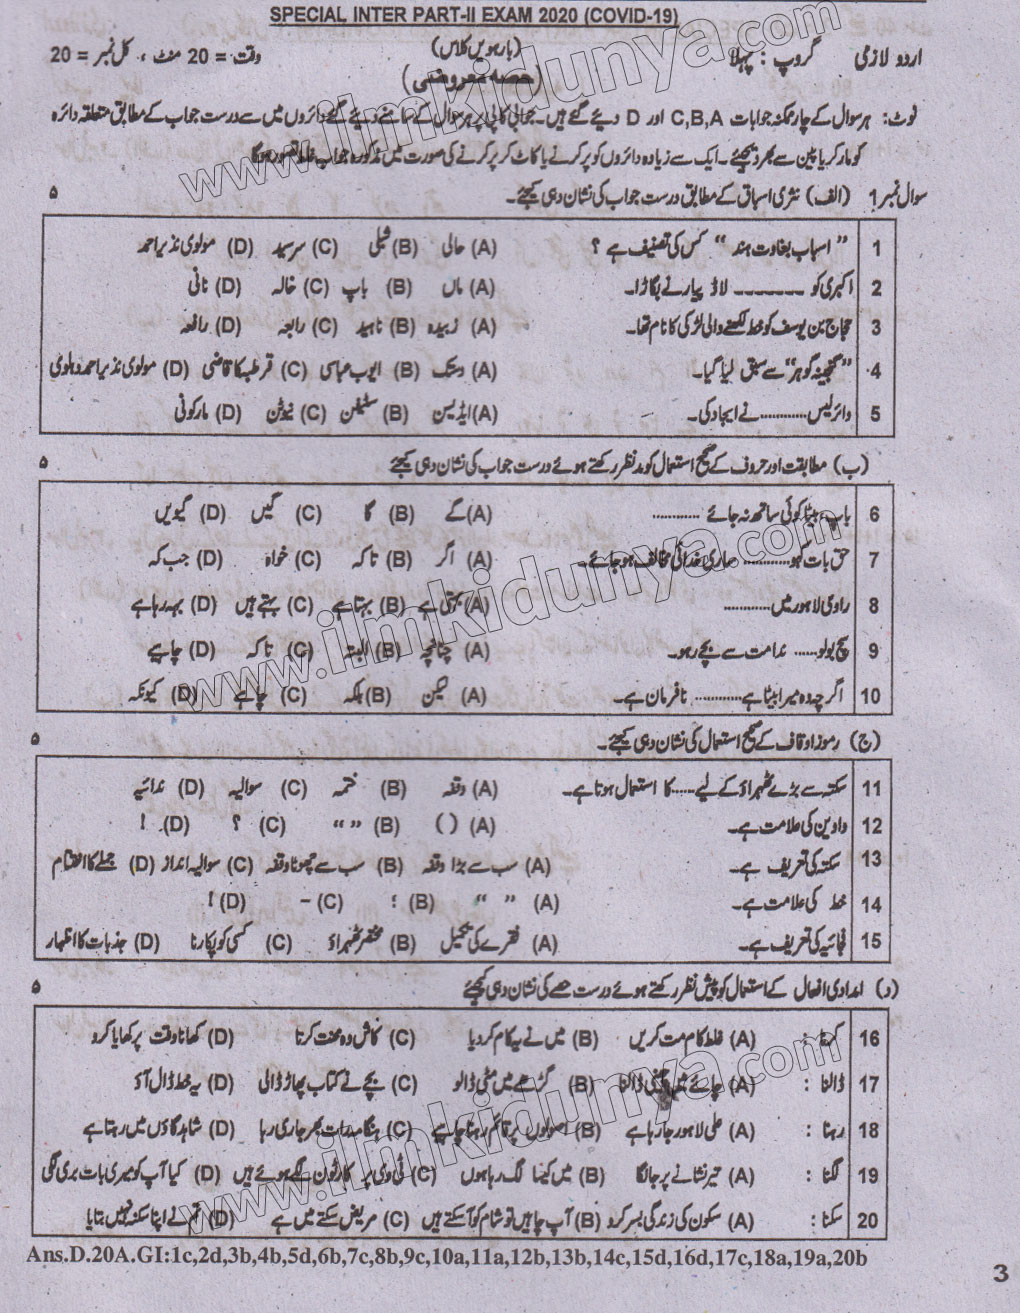 SPECIAL INTER PART-II EXAM 2020 (COVID-19)
اردو لازمی گروپ : پہلا (بارھویں کلاس) وقت = 20 منٹ ، کل نمبر = 20
(حصہ معروضی)
نوٹ: ہر سوال کے چار ممکنہ جوابات C,B,A اور D دیئے گئے ہیں۔ جوابی کاپی پر ہر سوال کے سامنے دیئے گئے دائروں میں سے درست جواب کے مطابق متعلقہ دائرہ
کو مارکر یا پین سے بھر دیجیئے۔ ایک سے زیادہ دائروں کو پر کرنے یا کاٹ کر پر کرنے کی صورت میں مذکورہ جواب غلط تصور ہوگا
سوال نمبر 1 (الف) نثری اسباق کے مطابق درست جواب کی نشان دہی کیجئے۔ ۵
1 "اسباب بغاوت ہند" کس کی تصنیف ہے ؟ (A) حالی (B) شبلی (C) سرسید (D) مولوی نذیر احمد
2 اکبری کو ________ لاڈ پیار نے بگاڑا۔ (A) ماں (B) باپ (C) خالہ (D) نانی
3 حجاج بن یوسف کو خط لکھنے والی لڑکی کا نام تھا۔ (A) زبیدہ (B) ناہید (C) رابعہ (D) رافعہ
4 "گنجینہ گوہر" سے سبق لیا گیا۔ (A) دستک (B) ایوب عباسی (C) قرطبہ کا قاضی (D) مولوی نذیر احمد دہلوی
5 وائرلیس........... نے ایجاد کی۔ (A) ایڈیسن (B) سٹیفن (C) نیوٹن (D) مارکونی
(ب) مطابقت اور حروف کے صحیح استعمال کو مدنظر رکھتے ہوئے درست جواب کی نشان دہی کیجئے ۵
6 باپ، بیٹا کوئی ساتھ نہ جائے ........... (A) گے (B) گا (C) گیں (D) گیویں
7 حق بات کہو........... ساری خدائی مخالف ہو جائے۔ (A) اگر (B) تاکہ (C) خواہ (D) جب کہ
8 راوی لاہور میں........... (A) بہتی ہے (B) بہتا ہے (C) بہتے ہیں (D) بہہ رہا ہے
9 سچ بولو...... ندامت سے بچے رہو۔ (A) چنانچہ (B) البتہ (C) تاکہ (D) چاہیے
10 اگرچہ وہ میرا بیٹا ہے........... نافرمان ہے۔ (A) لیکن (B) بلکہ (C) چاہے (D) کیونکہ
(ج) رموز اوقاف کے صحیح استعمال کی نشان دہی کیجئے۔ ۵
11 سکتہ سے بڑے ٹھہراؤ کے لیے...... کا استعمال ہوتا ہے۔ (A) وقفہ (B) ختمہ (C) سوالیہ (D) ندائیہ
12 واوین کی علامت ہے۔ (A) ( ) (B) " " (C) ؟ (D) !
13 سکتہ کی تعریف ہے۔ (A) سب سے بڑا وقفہ (B) سب سے چھوٹا وقفہ (C) سوالیہ انداز (D) جملے کا اختتام
14 خط کی علامت ہے۔ (A) " " (B) ؛ (C) - (D) !
15 فجائیہ کی تعریف ہے۔ (A) فقرے کی تکمیل (B) مختصر ٹھہراؤ (C) کسی کو پکارنا (D) جذبات کا اظہار
(د) امدادی افعال کے استعمال کو پیش نظر رکھتے ہوئے درست حصے کی نشان دہی کیجئے ۵
16 کرنا : (A) غلط کام مت کریں (B) میں نے یہ کام کر دیا (C) کاش وہ محنت کرتا (D) کھانا وقت پر کھایا کرو
17 ڈالنا : (A) چائے میں چینی ڈالنا (B) گڑھے میں مٹی ڈالو (C) بچے نے کتاب پھاڑ ڈالی (D) یہ خط ڈال آؤ
18 رہنا : (A) علی لاہور جا رہا ہے (B) اصولوں پر قائم رہنا چاہیے (C) ہنگامہ رات بھر جاری رہا (D) شاہد گاؤں میں رہتا ہے
19 لگنا : (A) تیر نشانے پر جا لگا (B) میں کیسا لگ رہا ہوں (C) ٹی وی پر کارٹون لگے ہوئے ہیں (D) کیا آپ کو میری بات بری لگی
20 سکنا : (A) سکون کی زندگی بسر کرو (B) آپ چاہیں تو شام کو آ سکتے ہیں (C) مریض سکتے میں ہے (D) تم نے اپنا سکہ نہیں بتایا
Ans.D.20A.GI:1c,2d,3b,4b,5d,6b,7c,8b,9c,10a,11a,12b,13b,14c,15d,16d,17c,18a,19a,20b
3
www.ilmkidunya.com
www.ilmkidunya.com
www.ilmkidunya.com